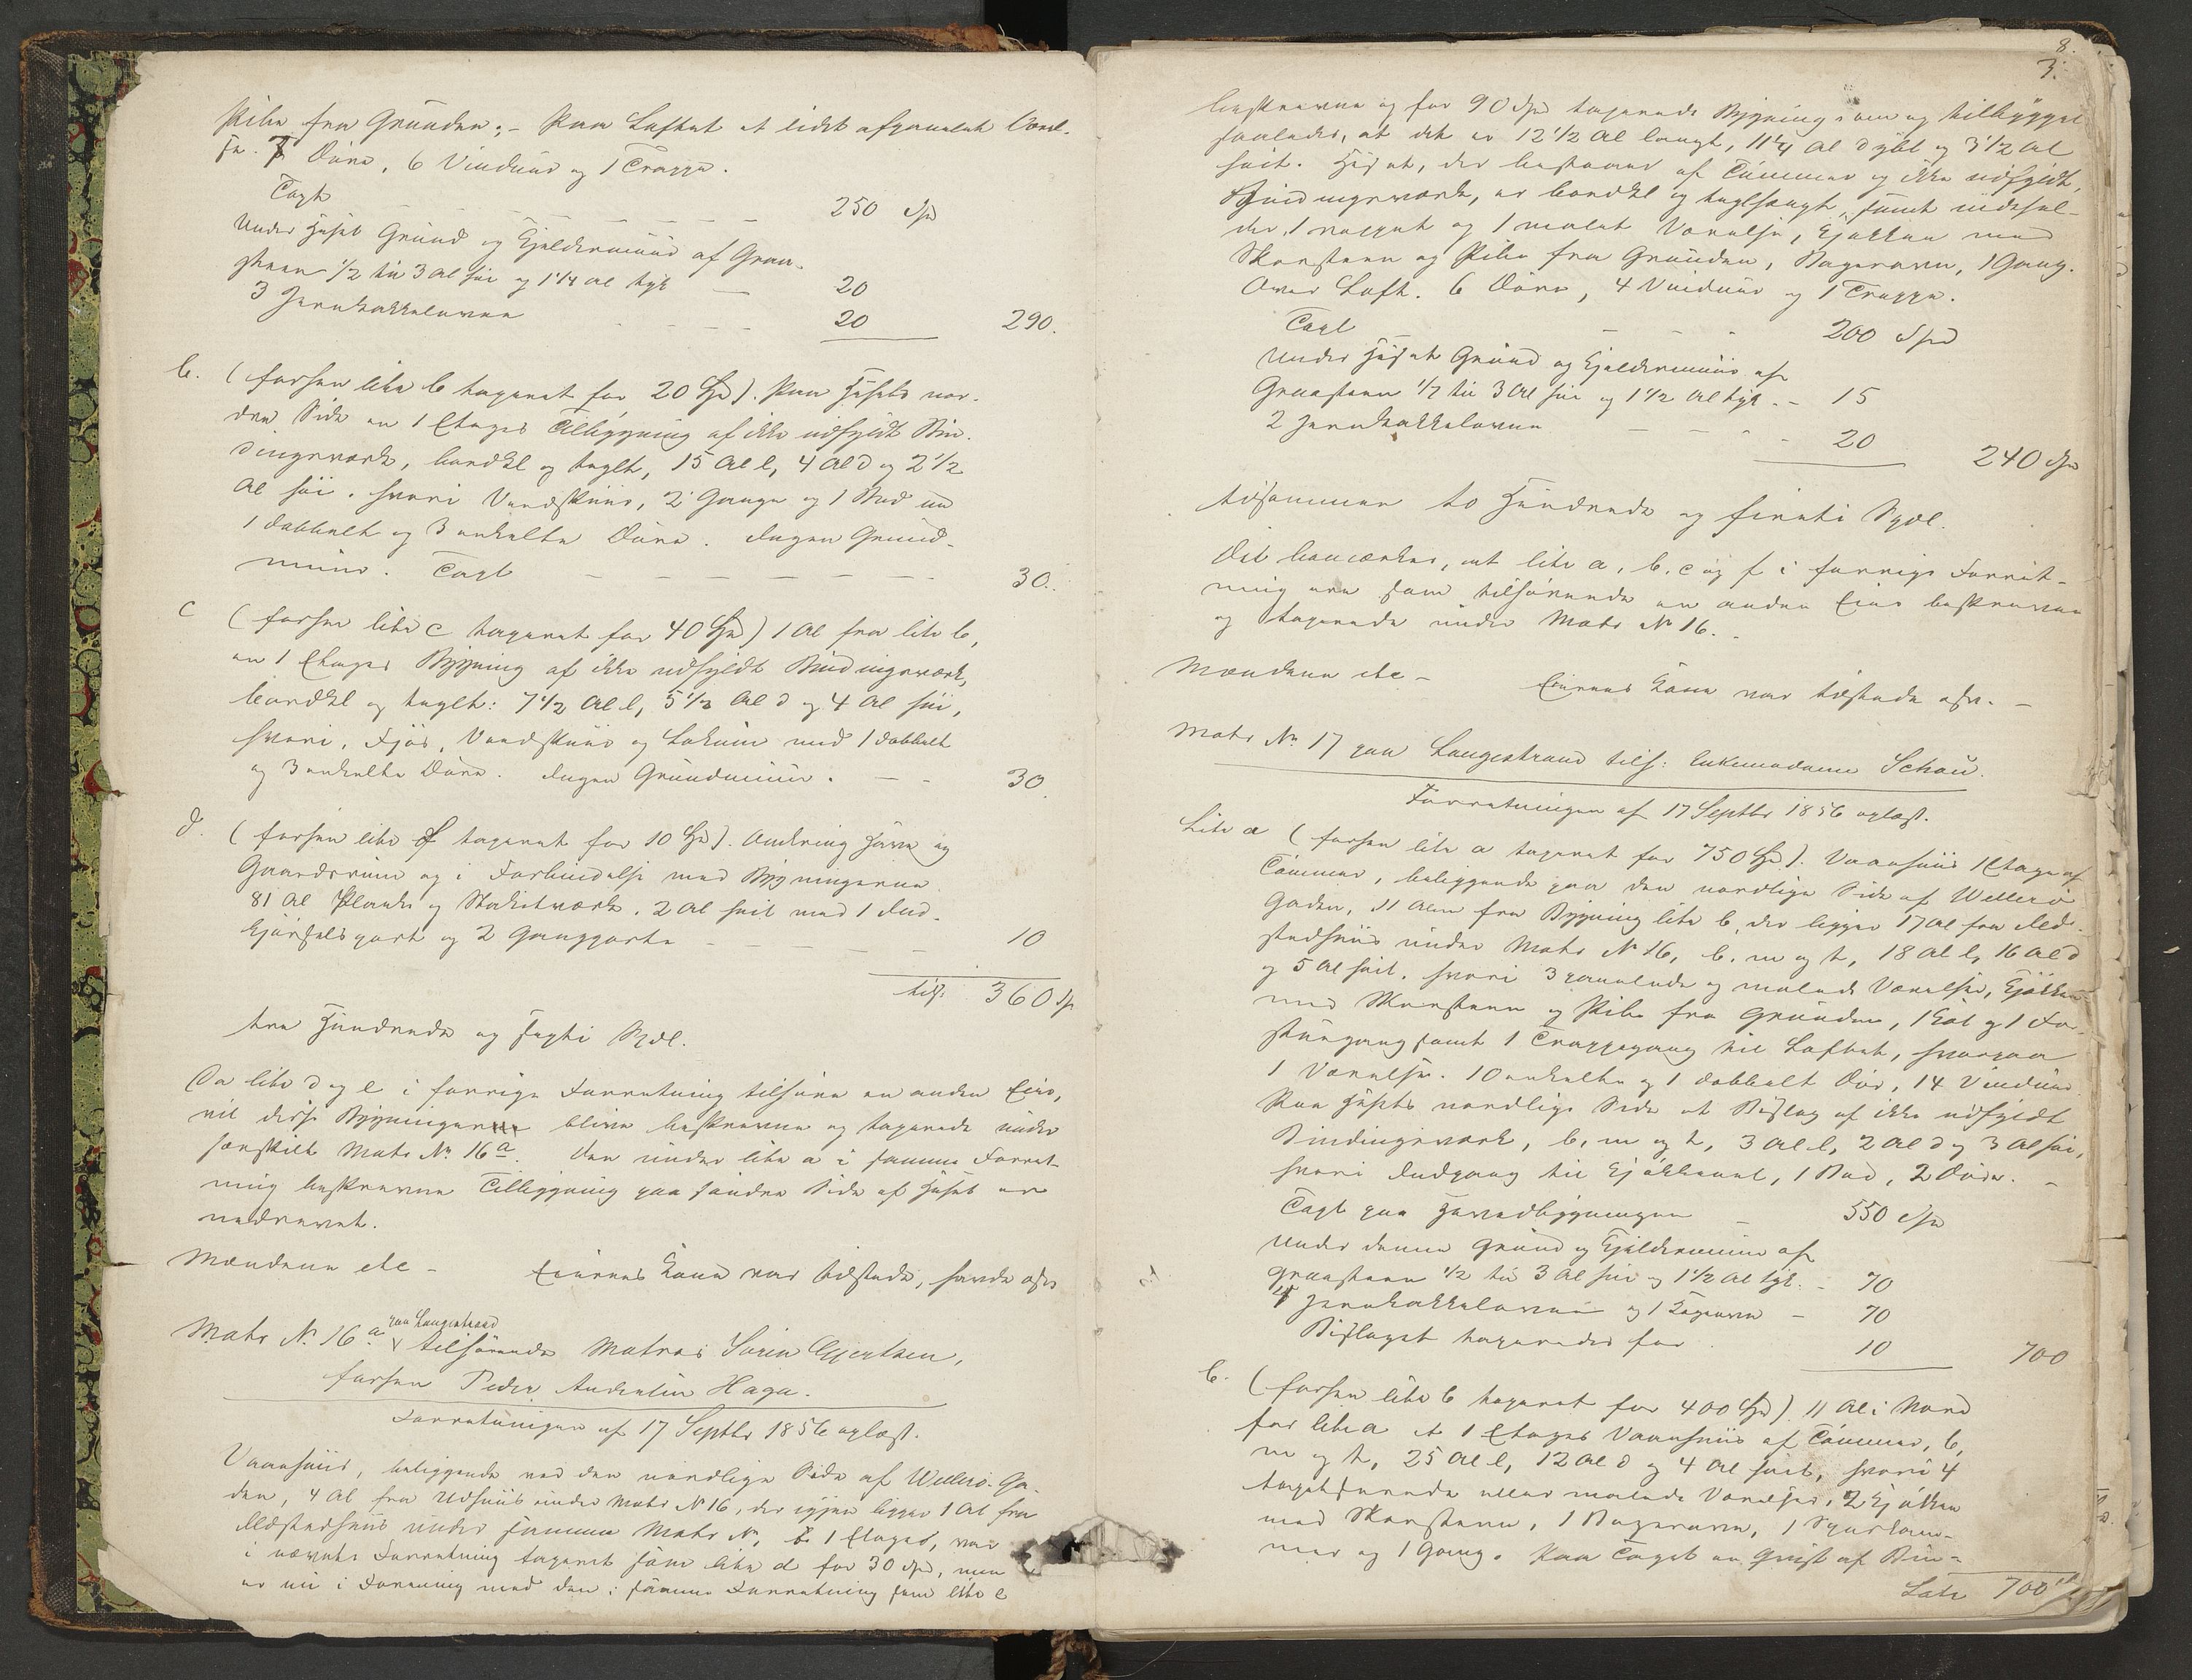 Pibe fra Grunden; - Paa Loftet et lidet afpanelet Værel-
se. 7 Döre, 6 Vinduer og 1 Trappe.
Taxt 250 Spd
Under Huset Grund og Kjeldermuur af Graa-
steen 1/2 til 3 Al höi og 1 1/4 Al tyk 20
3 Jernkakkelovne 20 290.
b. (forhen litr b taxeret for 20 Spd). Paa Husets nor-
dre Side en 1 Etages Tilbygning af ikke udfyldt Bin-
dingsværk, bordkl og teglt, 15 Al l, 4 Al d og 2 1/2
Al höi. hvori Vedskuur, 2 Gange og 1 Bod med
1 dobbelt og 3 enkelte Döre. Ingen Grund-
muur. Taxt 30.
c (forhen litr c taxeret for 40 Spd) 1 Al fra litr b,
en 1 Etages Bygning af ikke udfyldt Bindingsværk,
bordkl og teglt: 7 1/2 Al l, 5 1/2 Al d og 4 Al höi,
hvori, Fjös, Vedskuur og Lokum med 1 dobbelt
og 3 enkelte Döre. Ingen Grundmuur. 30
d. (forhen litr f taxeret for 10 Spd). Omkring Have og
Gaardsrum og i Forbindelse med Bygningerne
81 Al Planke og Stakitværk. 2 Al höit med 1 Ind-
kjörselsport og 2 Gangporte 10
tils: 360 Sp
tre Hundrede og sexti Spdl.
Da litr d og e i forrige Forretning tilhöre en anden Eier,
vil disse Bygninger blive beskrevne og taxerede under
særskilt Matr No 16 a. Den under litr a i samme Forret-
ning beskrevne Tilbygning paa söndre Side af Huset er
nedrevet.
Mændene etc - Eierens Kone var tilstede,
Matr No 16 a paa Langestrand tilhörende Matros Sörin Gjertsen,
forhen Peder Andersen Haga.
Forretningen af 17 Septbr 1856 oplæst.
Vaanhuus, beliggende ved den nordlige Side af Welleró Ga-
den, 4 Al fra Udhuus under Matr No 16, der igjen ligger 1 Al fra
Ildstedhuus under samme Matr No, 1 Etages, var
i nævnte Forretning taxeret som litr d for 30 Spd, men
er nu i Forening med den i samme Forretning som litr e
8.
3.
beskrevne og for 90 Spd taxerede Bygning om og tilbygget
saaledes, at det er 12 1/2 Al langt, 11 1/4 Al dybt og 3 1/2 Al
höit. Huset, der bestaar af Tömmer og ikke udfyldt
Bindingsværk, er bordkl og teglhængt, samt indehol-
der 1 rappet og 1 malet Værelse, Kjökken med
Skorsteen og Pibe fra Grunden, Bagerovn, 1 Gang.
Over Loft. 6 Döre, 4 Vinduer og 1 Trappe.
Taxt 200 Spd
Under Huset Grund og Kjeldermuur af
Graasteen 1/2 til 3 Al höi og 1 1/2 Al tyk. - 15
2 Jernkakkelovne 20 240 Spd
tilsammen to Hundrede og fireti Spdl.
Det bemærkes, at litr a, b, c og f i forrige Forret-
ning ere som tilhörende en anden Eier beskrevne
og taxerede under Matr No 16.
Mændene etc - Eierens Kone var tilstede
Matr No 17 paa Langestrand tilh: Enkemadame Schou.
Forretningen af 17 Septbr 1856 oplæst.
Litr a (forhen litr a taxeret for 750 Spd). Vaanhuus 1 Etage af
Tömmer, beliggende paa den nordlige Side af Welleró
Gaden, 11 Alen fra Bygning litr b, der ligger 17 Al fra Ild-
stedhuus under Matr No 16, b. m og t, 18 Al l, 16 Al d
og 5 Al höit. hvori 3 panelede og malede Værelser, Kjökken
med Skorsteen og Pibe fra Grunden, 1 Kot og 1 For-
stuegang samt 1 Trappegang til Loftet, hvorpaa
1 Værelse. 10 enkelte og 1 dobbelt Dör, 14 Vinduer
Paa Husets nordlige Side et Bislag af ikke udfyldt
Bindingsværk, b, m og t, 3 Al l, 2 Al d og 3 Al höi,
hvori Indgang til Kjökkenet, 1 Bod, 2 Döre. -
Taxt paa Hovedbygningen 550 Spd
Under denne Grund og Kjeldermuur af
Graasteen 1/2 til 3 Al höi og 1 1/2 Al tyk. - 70
4 Jernkakkelovne og 1 Bagerovn - 70
Bislaget taxeredes for 10 700
b. (forhen litr b taxeret for 400 Spd) 11 Al i Nord
for litr a et 1 Etages Vaanhuus af Tömmer, b,
m og t, 25 Al l, 12 Al d og 4 Al höit, hvori 4
tapetserede eller malede Værelser, 2 Kjökken
med Skorsteen, 1 Bagerovn, 1 Spiskam-
mer og 1 Gang. Paa Taget en Qvist af Bin-
Latr 700